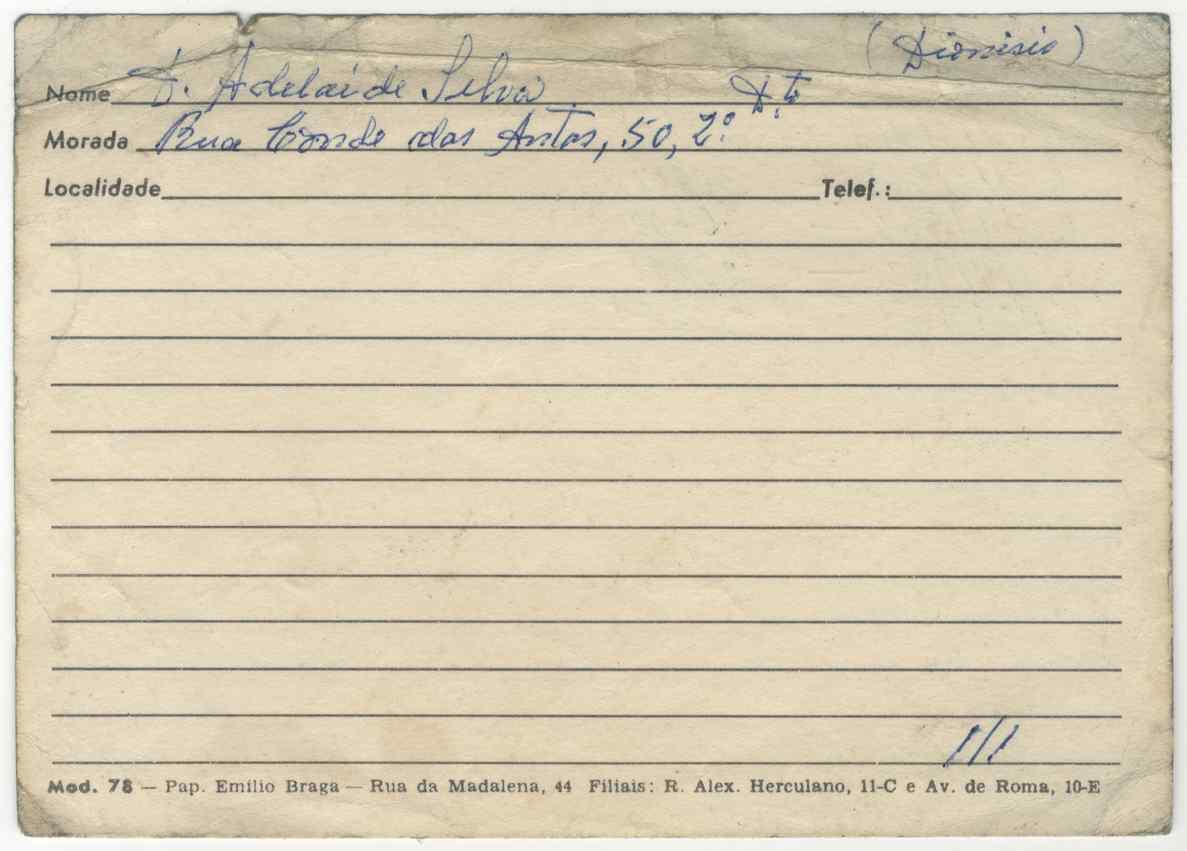 (Dionisio)
Nome D. Adelaide Silva
Morada Rua Conde das Antas, 50, 2º D.to
Localidade Telef.:
1/1
Mod. 78 — Pap. Emílio Braga — Rua da Madalena, 44 Filiais: R. Alex. Herculano, 11-C e Av. de Roma, 10-E